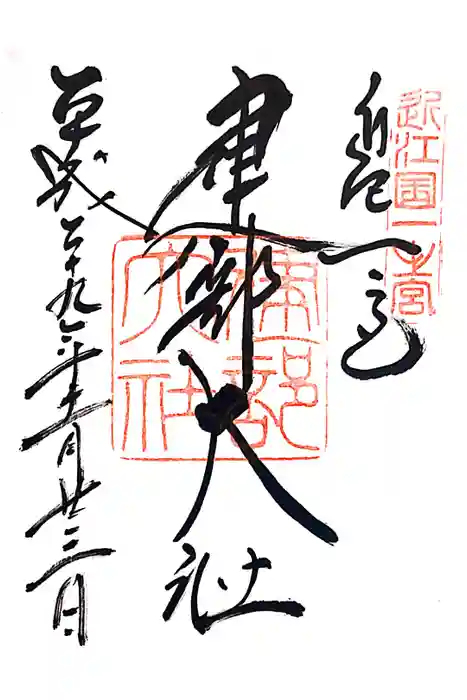 近江国一之宮
近江一之宮
建部大社
建部大社
平成二十九年十一月廿三日